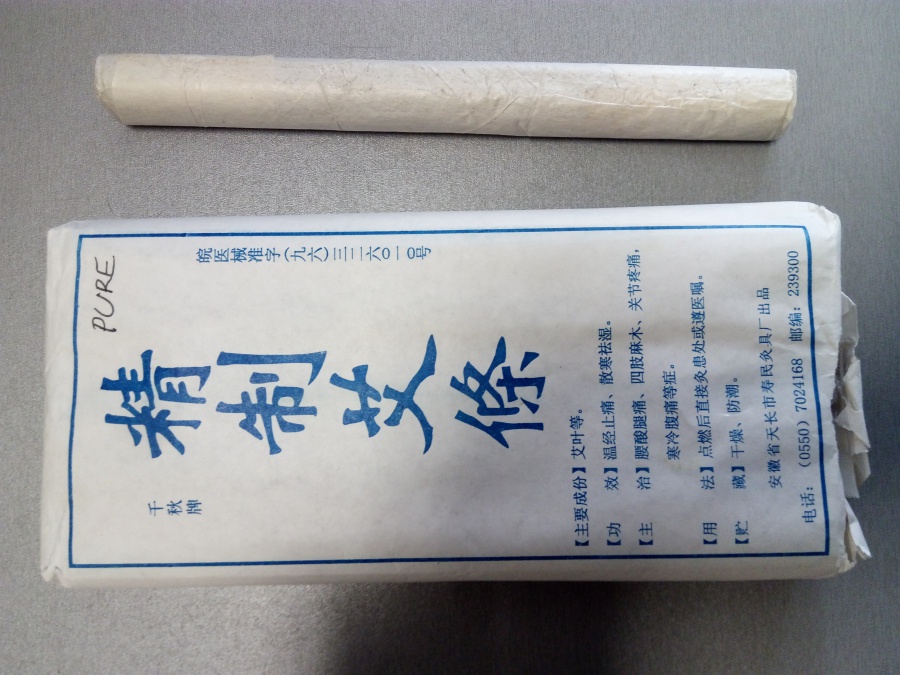 PURE
皖医械准字(九六)三二二六0一0号
精制艾條
千秋牌
【主要成份】艾叶等。
【功 效】温经止痛、散寒祛湿。
【主 治】腰酸腿痛、四肢麻木、关节疼痛,
寒冷腹痛等症。
【用 法】点燃后直接灸患处或遵医嘱。
【贮 藏】干燥、防潮。
安徽省天长市寿民灸具厂出品
电话:(0550)7024168 邮编:239300